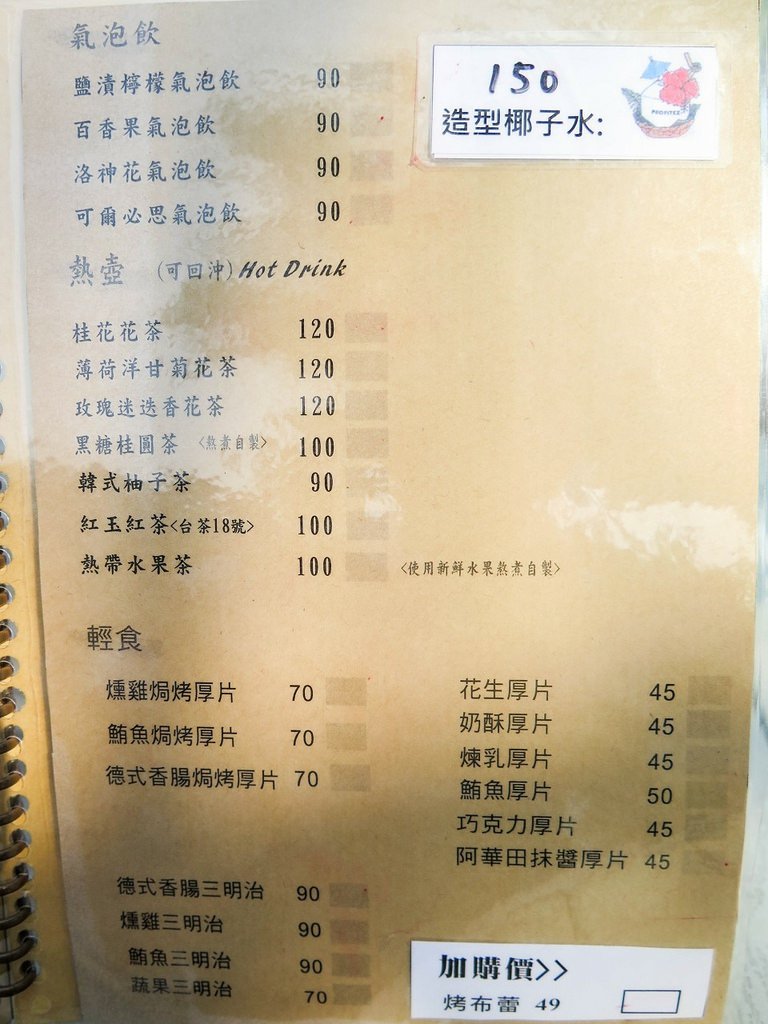 氣泡飲
鹽漬檸檬氣泡飲 90
百香果氣泡飲 90
洛神花氣泡飲 90
可爾必思氣泡飲 90
150
造型椰子水:
PROFITEZ
熱壺 (可回沖) Hot Drink
桂花花茶 120
薄荷洋甘菊花茶 120
玫瑰迷迭香花茶 120
黑糖桂圓茶 <熬煮自製> 100
韓式柚子茶 90
紅玉紅茶<台茶18號> 100
熱帶水果茶 100 <使用新鮮水果熬煮自製>
輕食
燻雞焗烤厚片 70
鮪魚焗烤厚片 70
德式香腸焗烤厚片 70
花生厚片 45
奶酥厚片 45
煉乳厚片 45
鮪魚厚片 50
巧克力厚片 45
阿華田抹醬厚片 45
德式香腸三明治 90
燻雞三明治 90
鮪魚三明治 90
蔬果三明治 70
加購價>>
烤布蕾 49